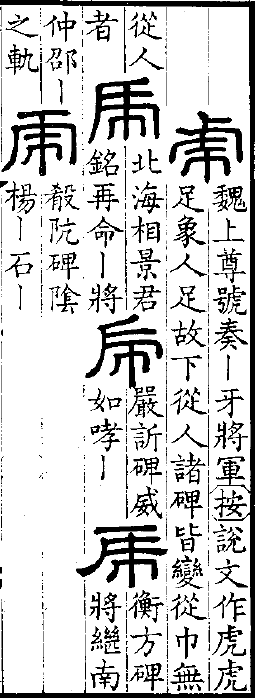 虎
魏上尊號奏丨牙將軍按說文作虎虎
足象人足故下從人諸碑皆變從巾無
從人
者
乕
北海相景君
銘再命丨將
乕
嚴訢碑威
如哮丨
乕
衡方碑
將繼南
仲邵丨
之軌
乕
殽阬碑陰
楊丨石丨